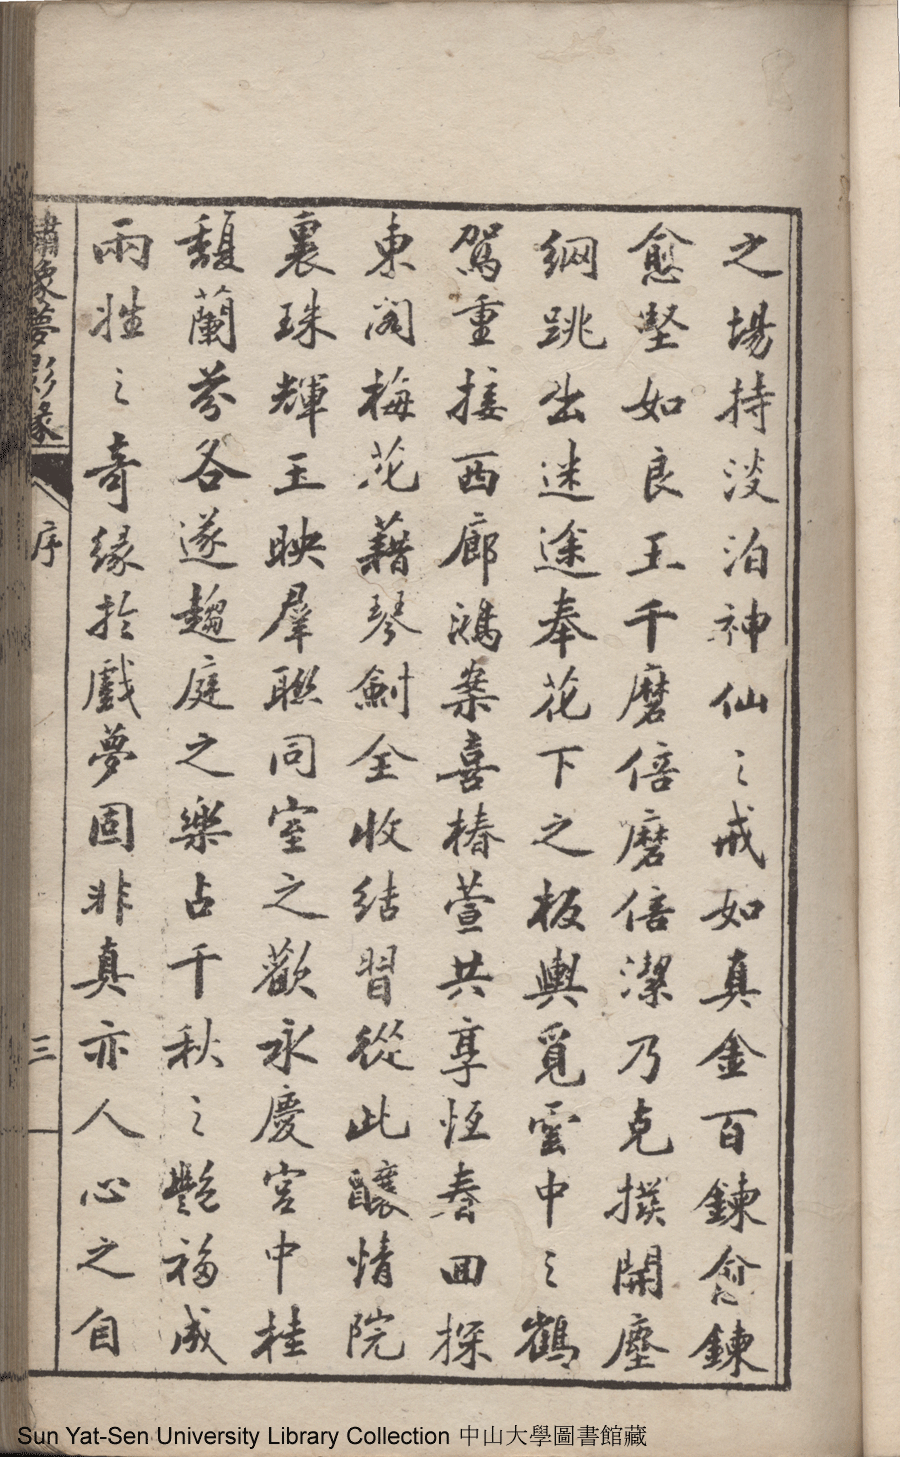 之塲持淡泊神仙〻戒如真金百鍊愈鍊
愈堅如良玉千磨倍磨倍潔乃克撲開塵
網跳出迷途奉花下之板輿覓雲中〻鶴
駕重接西廊鴻案喜椿萱共享恆春回探
東閣梅花藉琴劍全收結習從此釀情院
裏珠輝玉映羣聯同室之歡永慶宮中桂
馥蘭芬各遂趨庭之樂占千秋〻艷福成
兩性〻奇緣於戲夢固非真亦人心之自
繡像夢影緣
序
三
Sun Yat-Sen University Library Collection 中山大學圖書館藏